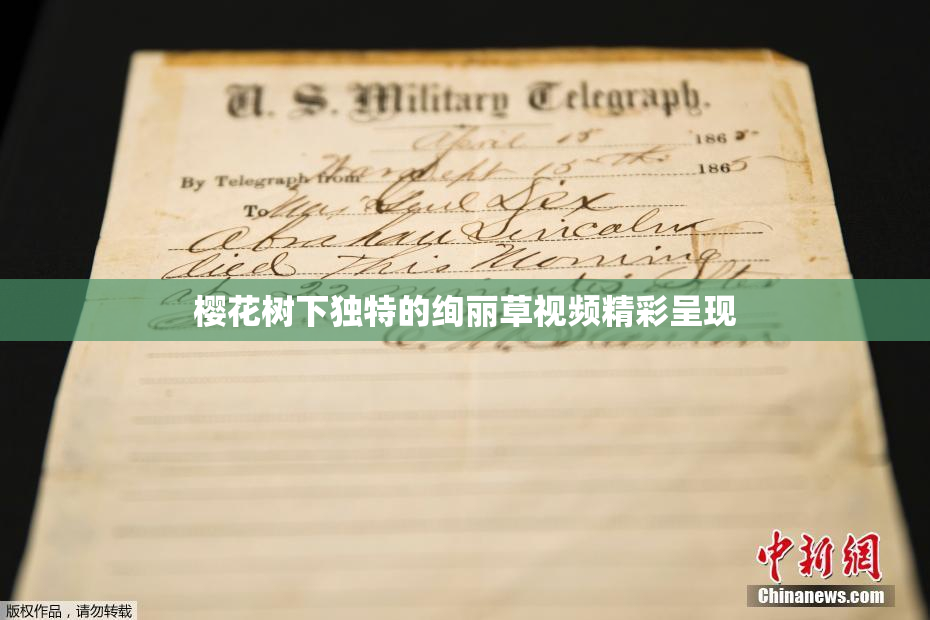 U. S. Military Telegraph.
April 15 1865
By Telegraph from War Dept 15th 1865
To Maj Genl Dix
Abraham Lincoln
died This Morning
at 22 minutes after
樱花树下独特的绚丽草视频精彩呈现
E. M. Stanton
中新网
Chinanews.com
版权作品，请勿转载